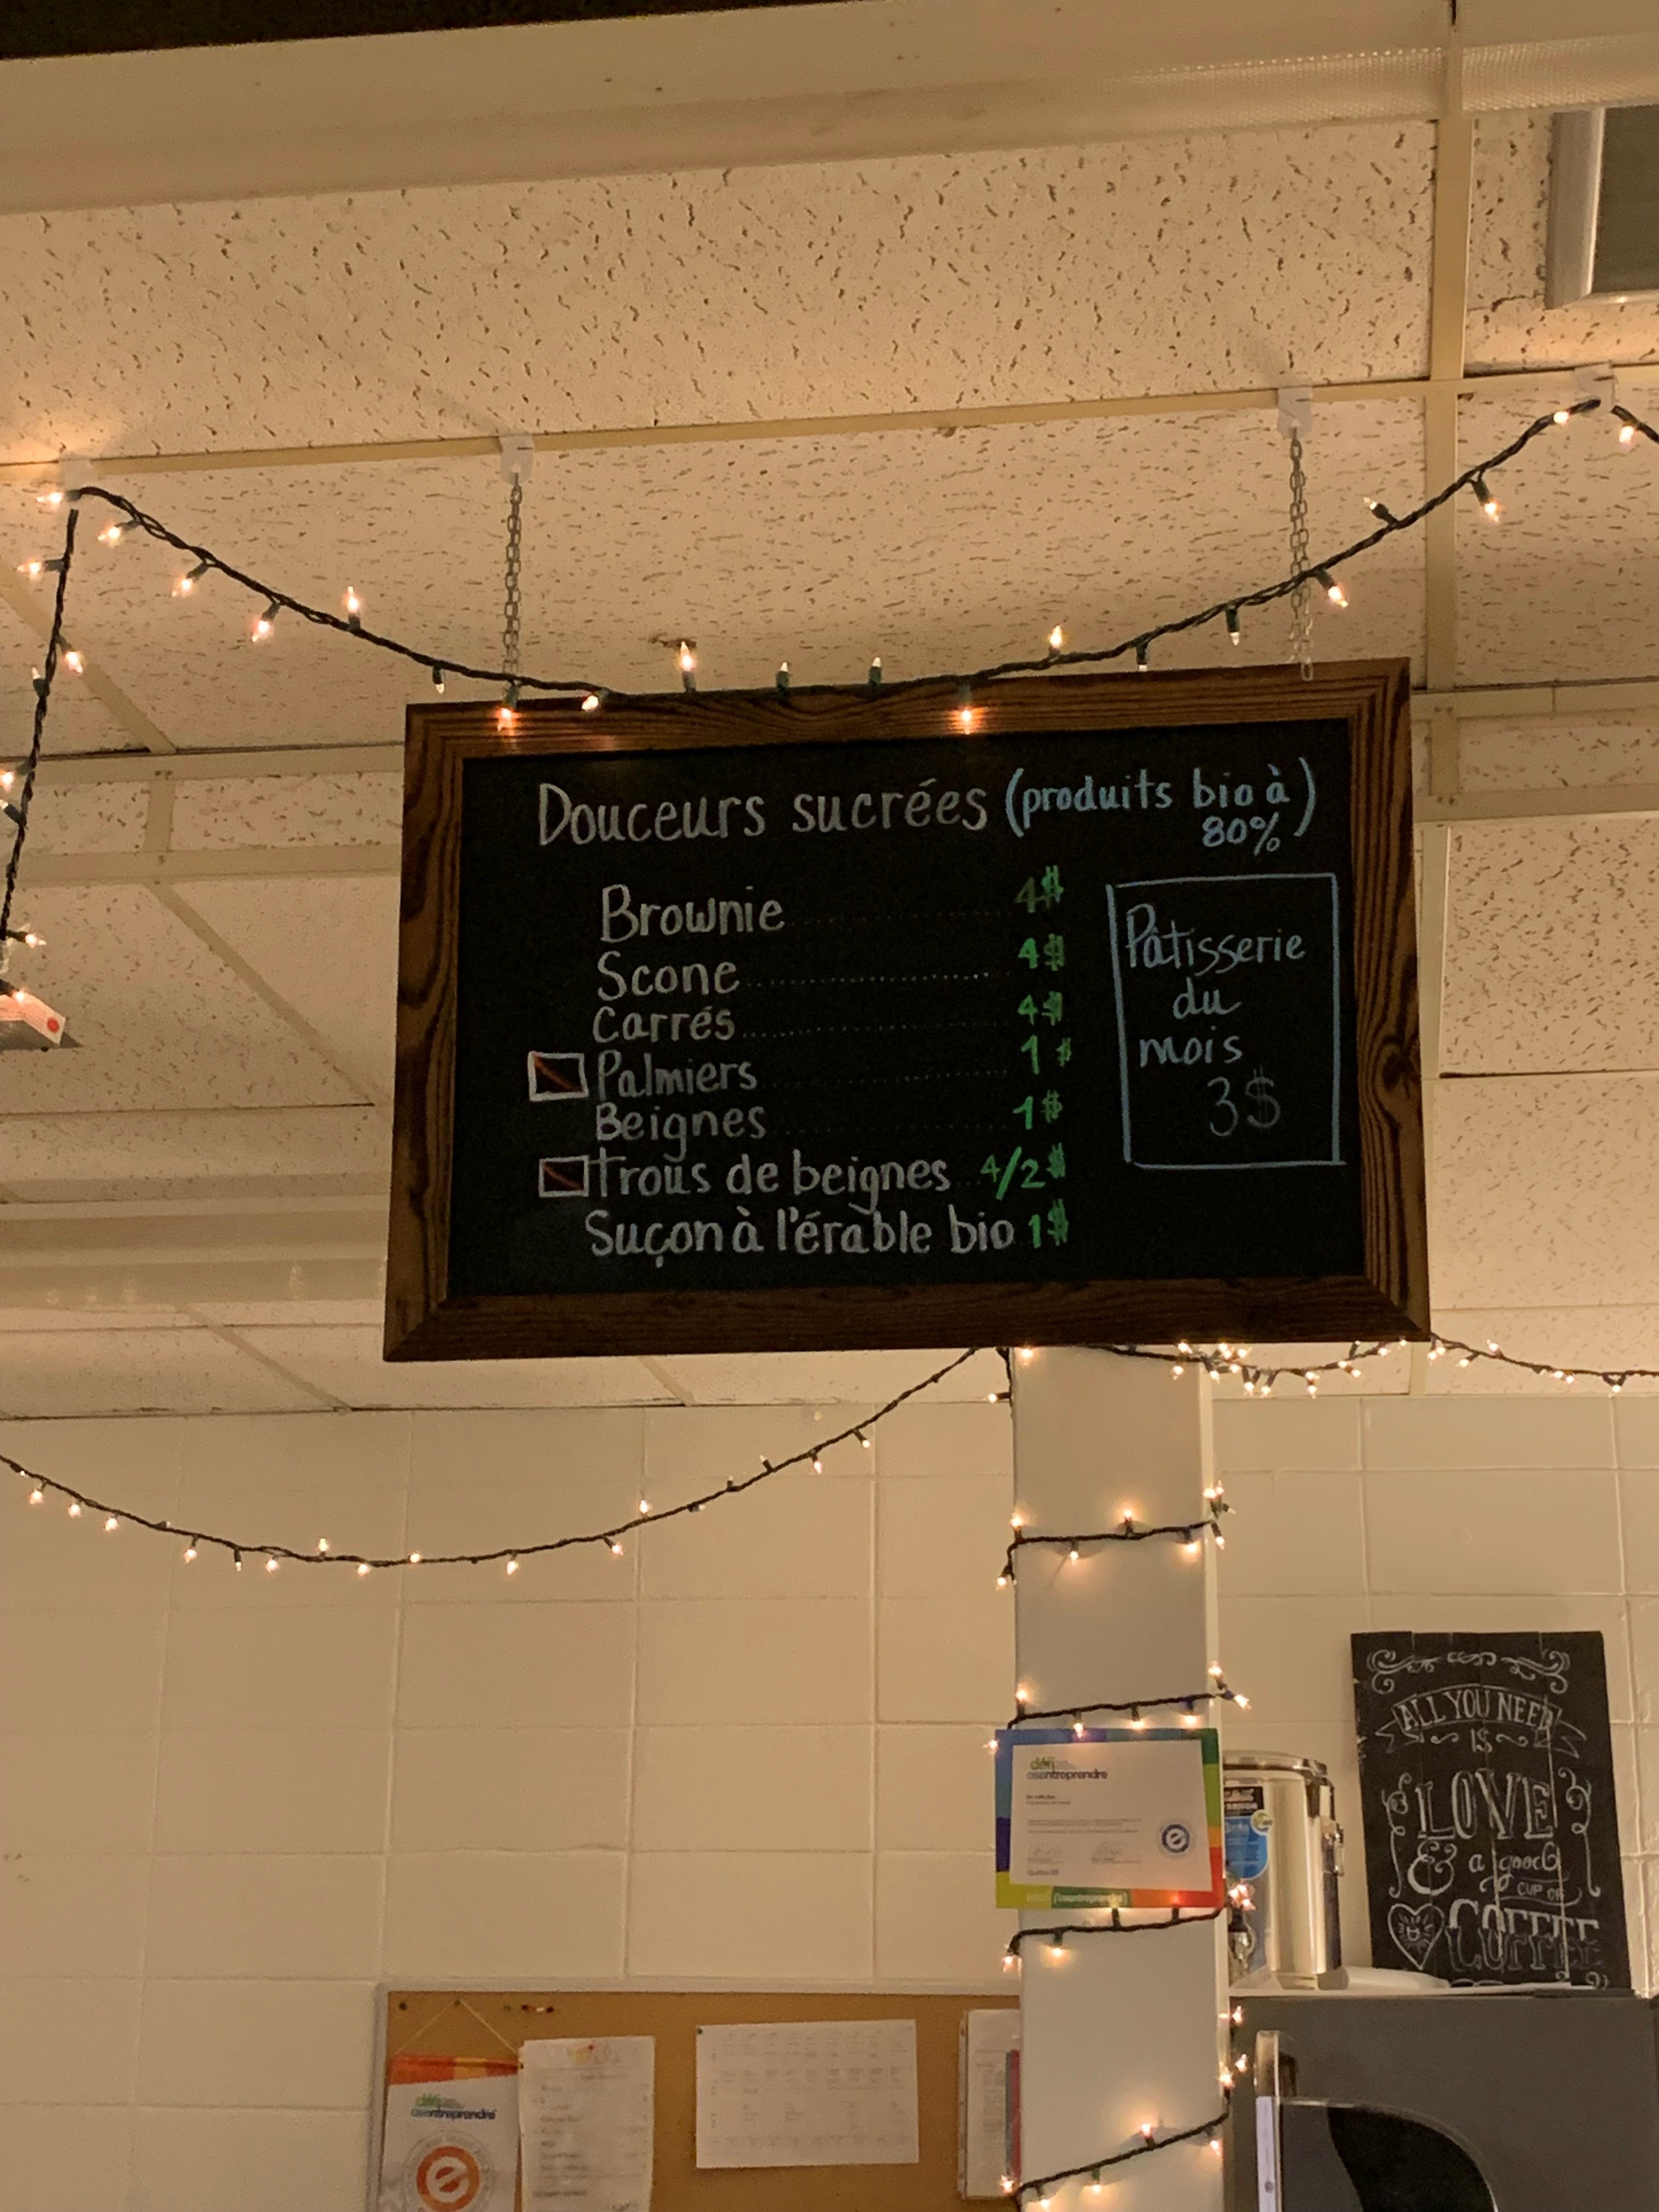 Douceurs sucrées (produits bio à
80%)
Brownie 4$
Scone 4$
Carrés 4$
Palmiers 1$
Beignes 1$
Trous de beignes 4/2$
Suçon à l'érable bio 1$
Pâtisserie
du
mois
3$
ALL YOU NEED
IS
LOVE
& a good
CUP OF
COFFEE
défi
osentreprendre
défi
osentreprendre